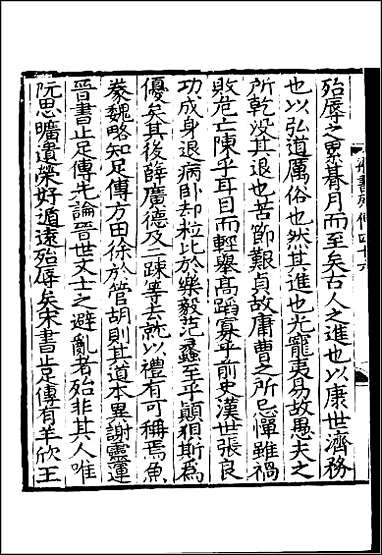 殆辱之累朞月而至矣古人之進也以康世濟務
也以弘道厲俗也然其進也光寵夷易故愚夫之
所乾没其退也苦節艱貞故庸曹之所忌憚雖禍
敗危亡陳乎耳目而輕舉髙蹈寡乎前史漢世張良
功成身退病卧却粒比於樂毅范蠡至乎顛狽斯為
優矣其後薛廣德及二踈等去就以禮有可稱焉魚
豢魏略知足傳方田徐於管胡則其道本異謝靈運
晉書止足傳先論晉世文士之避亂者殆非其人唯
阮思曠遺榮好遁遠殆辱矣宋書止足傳有羊欣王